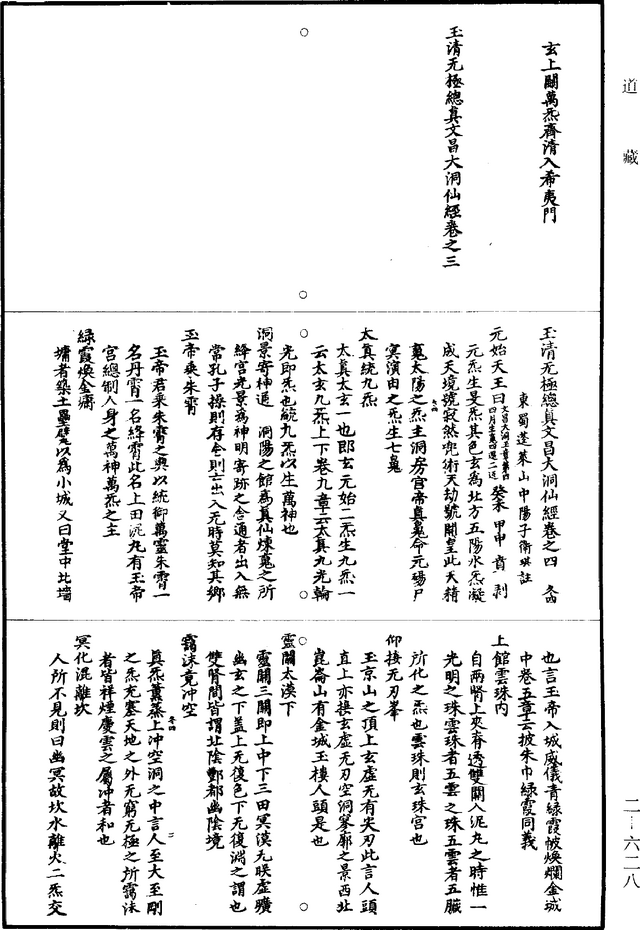 道藏
玄上關萬炁齊清入希夷門
玉清无極總真文昌大洞仙經卷之三
玉清无極總真文昌大洞仙經卷之四
東蜀蓬萊山中陽子衛琪註
元始天王曰
癸未 甲申 賁 剥
元炁生是炁其色玄為北方五陽水炁凝
成天境號寂然兜術天劫號開皇此天精
魂太陽之炁主洞房宫帝真魂命元
冥演由之炁生七魂
太真統九炁
太真太玄一也即玄元始二炁生九炁一
云太玄九炁上下卷九章云太真九光輪
光即炁也統九炁以生萬神也
洞景寄神遁 洞陽之館為真仙煉魂之所
絳宫光景為神明寄跡之舍通者出入無
常孔子操則存舍則亡出入无時莫知其鄉
玉帝乘朱霄
玉帝君乘朱霄之輿以統御萬靈朱霄一
名丹霄一名絳霄此名上田泥丸有玉帝
宫總制人身之萬神萬炁之主
綠霞煥金墉
墉者築土壘壁以為小城又曰堂中北墻
也言玉帝入城威儀青綠霞帔煥爛金城
中卷五章云披朱巾綠霞同義
上館雲珠内
自兩腎上夾脊透雙關入泥丸之時惟一
光明之珠雲珠者五雲之珠五雲者五臟
所化之炁也雲珠則玄珠宫也
仰接无刃峯
玉京山之頂上玄虚无有尖刃此言人頭
直上亦接玄虚无刃空洞寥廓之景西北
崑崙山有金城玉樓人頭是也
靈關太漠下
靈關三關即上中下三田冥漠九映虚曠
幽玄之下蓋上无復色下无復淵之謂也
雙腎間皆謂北陰酆都幽陰境
靄沫竟沖空
真炁薰蒸上沖空洞之中言人至大至剛
之炁充塞天地之外无窮无極之所靄沫
者皆祥煙慶雲之屬沖者和也
冥化混離坎
人所不見則曰幽冥故坎水離火二炁交
二—六二八